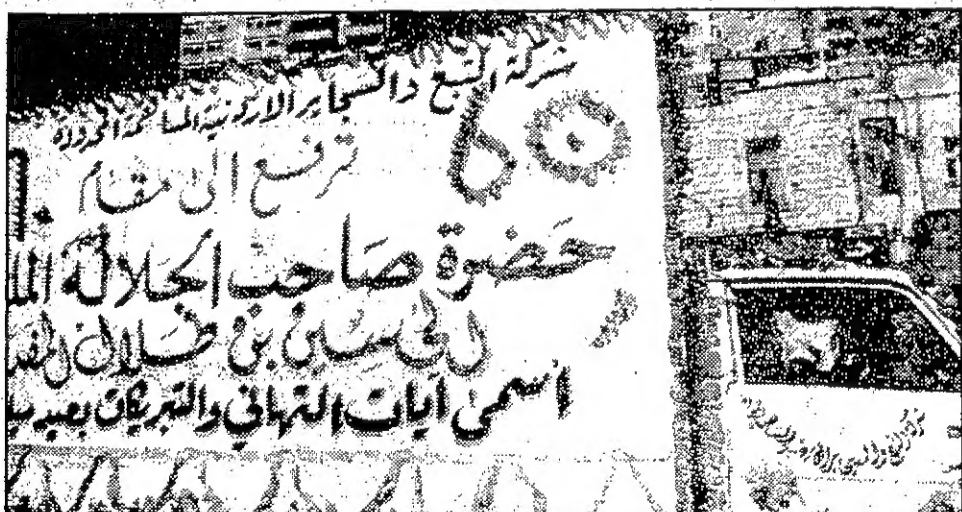 شركة التبغ والسجاير الاردنية المساهمة المحدودة
ترفع الى مقام
حضرة صاحب الجلالة المل
الحسين بن طلال المفد
اسمى آيات التهاني والتبريكات بعيد